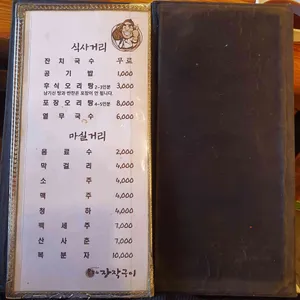 식사거리
잔치국수 무료
공기밥 1,000
후식오리탕 2-3인분 3,000
남기신 탕과 반찬은 포장이 안 됩니다.
포장오리탕 4-5인분 8,000
열무국수 6,000
마실거리
음료수 2,000
막걸리 4,000
소주 4,000
맥주 4,000
청하 4,000
백세주 7,000
산사춘 7,000
복분자 10,000
장작구이